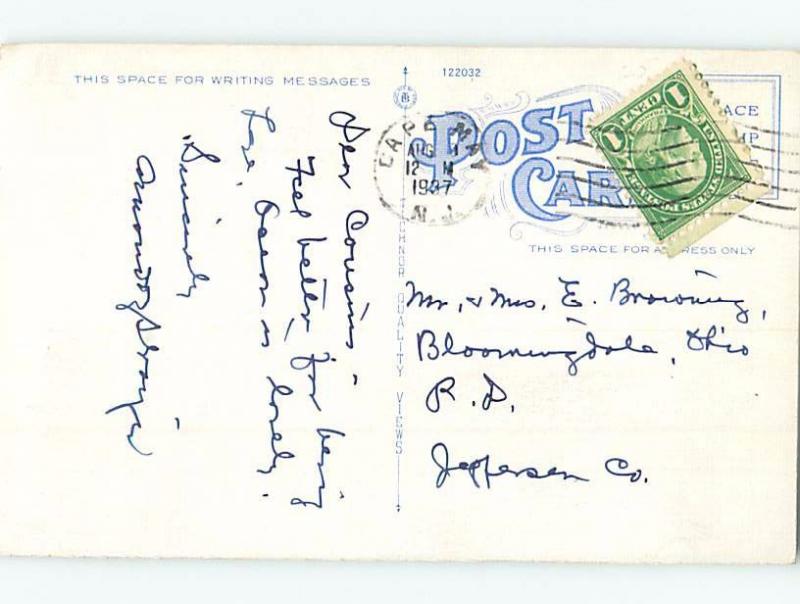 THIS SPACE FOR WRITING MESSAGES
Dear Cousins -
Feel better for being
here. Ocean is lovely.
Sincerely
122032
POST
CARD
CAPE MAY
AUG 1
12 M
1937
N.J.
THIS SPACE FOR ADDRESS ONLY
TICHNOR QUALITY VIEWS
Mr. & Mrs. E. Browning,
Bloomingdale, Ohio
R. D.
Jefferson Co.